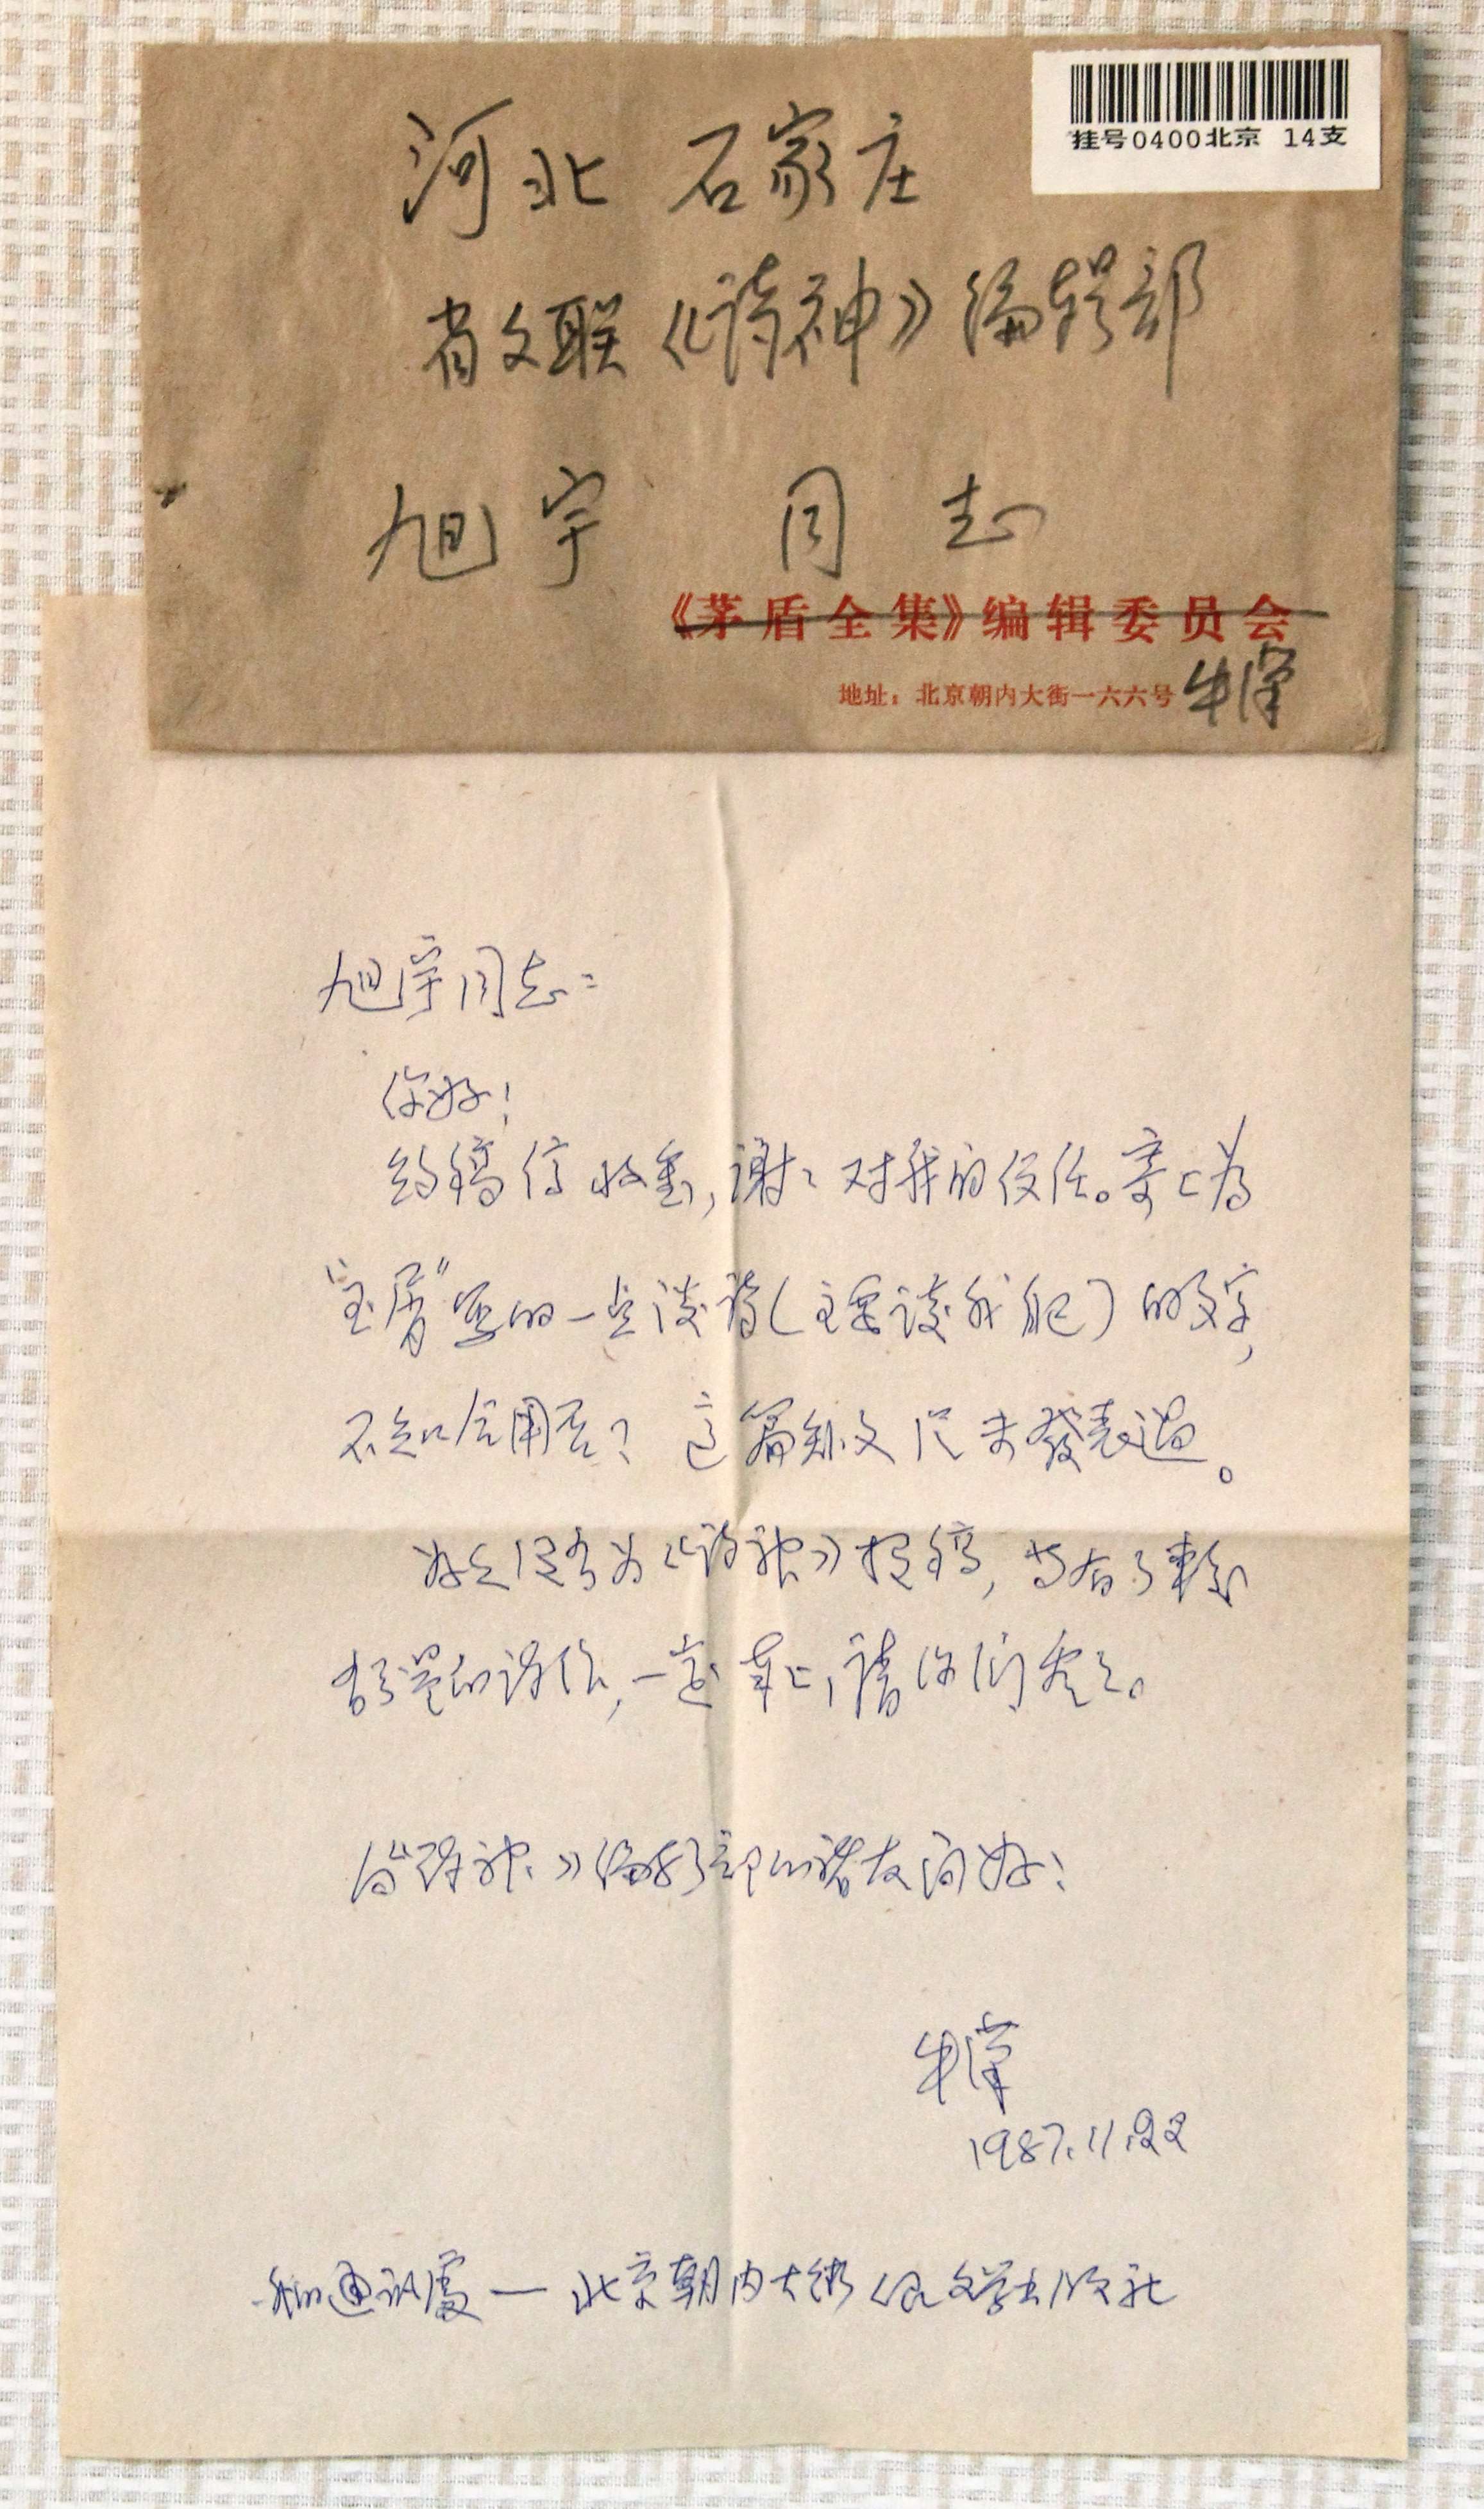 挂号0400北京 14支
河北 石家庄
省文联《诗神》编辑部
旭宇 同志
《茅盾全集》编辑委员会
地址：北京朝内大街一六六号 牛汉
旭宇同志：
你好！
约稿信收到，谢谢对我的信任。寄上为
写的一点谈诗（主要谈我自己）的文字，
不知合用否？这篇短文尚未發表过。
为《诗神》投稿，当有了较
的诗作，一定寄上，请你们
向《诗神》编辑部的诸友问好！
牛汉
1987.11.22
我的通讯處——北京朝内大街人民文学出版社